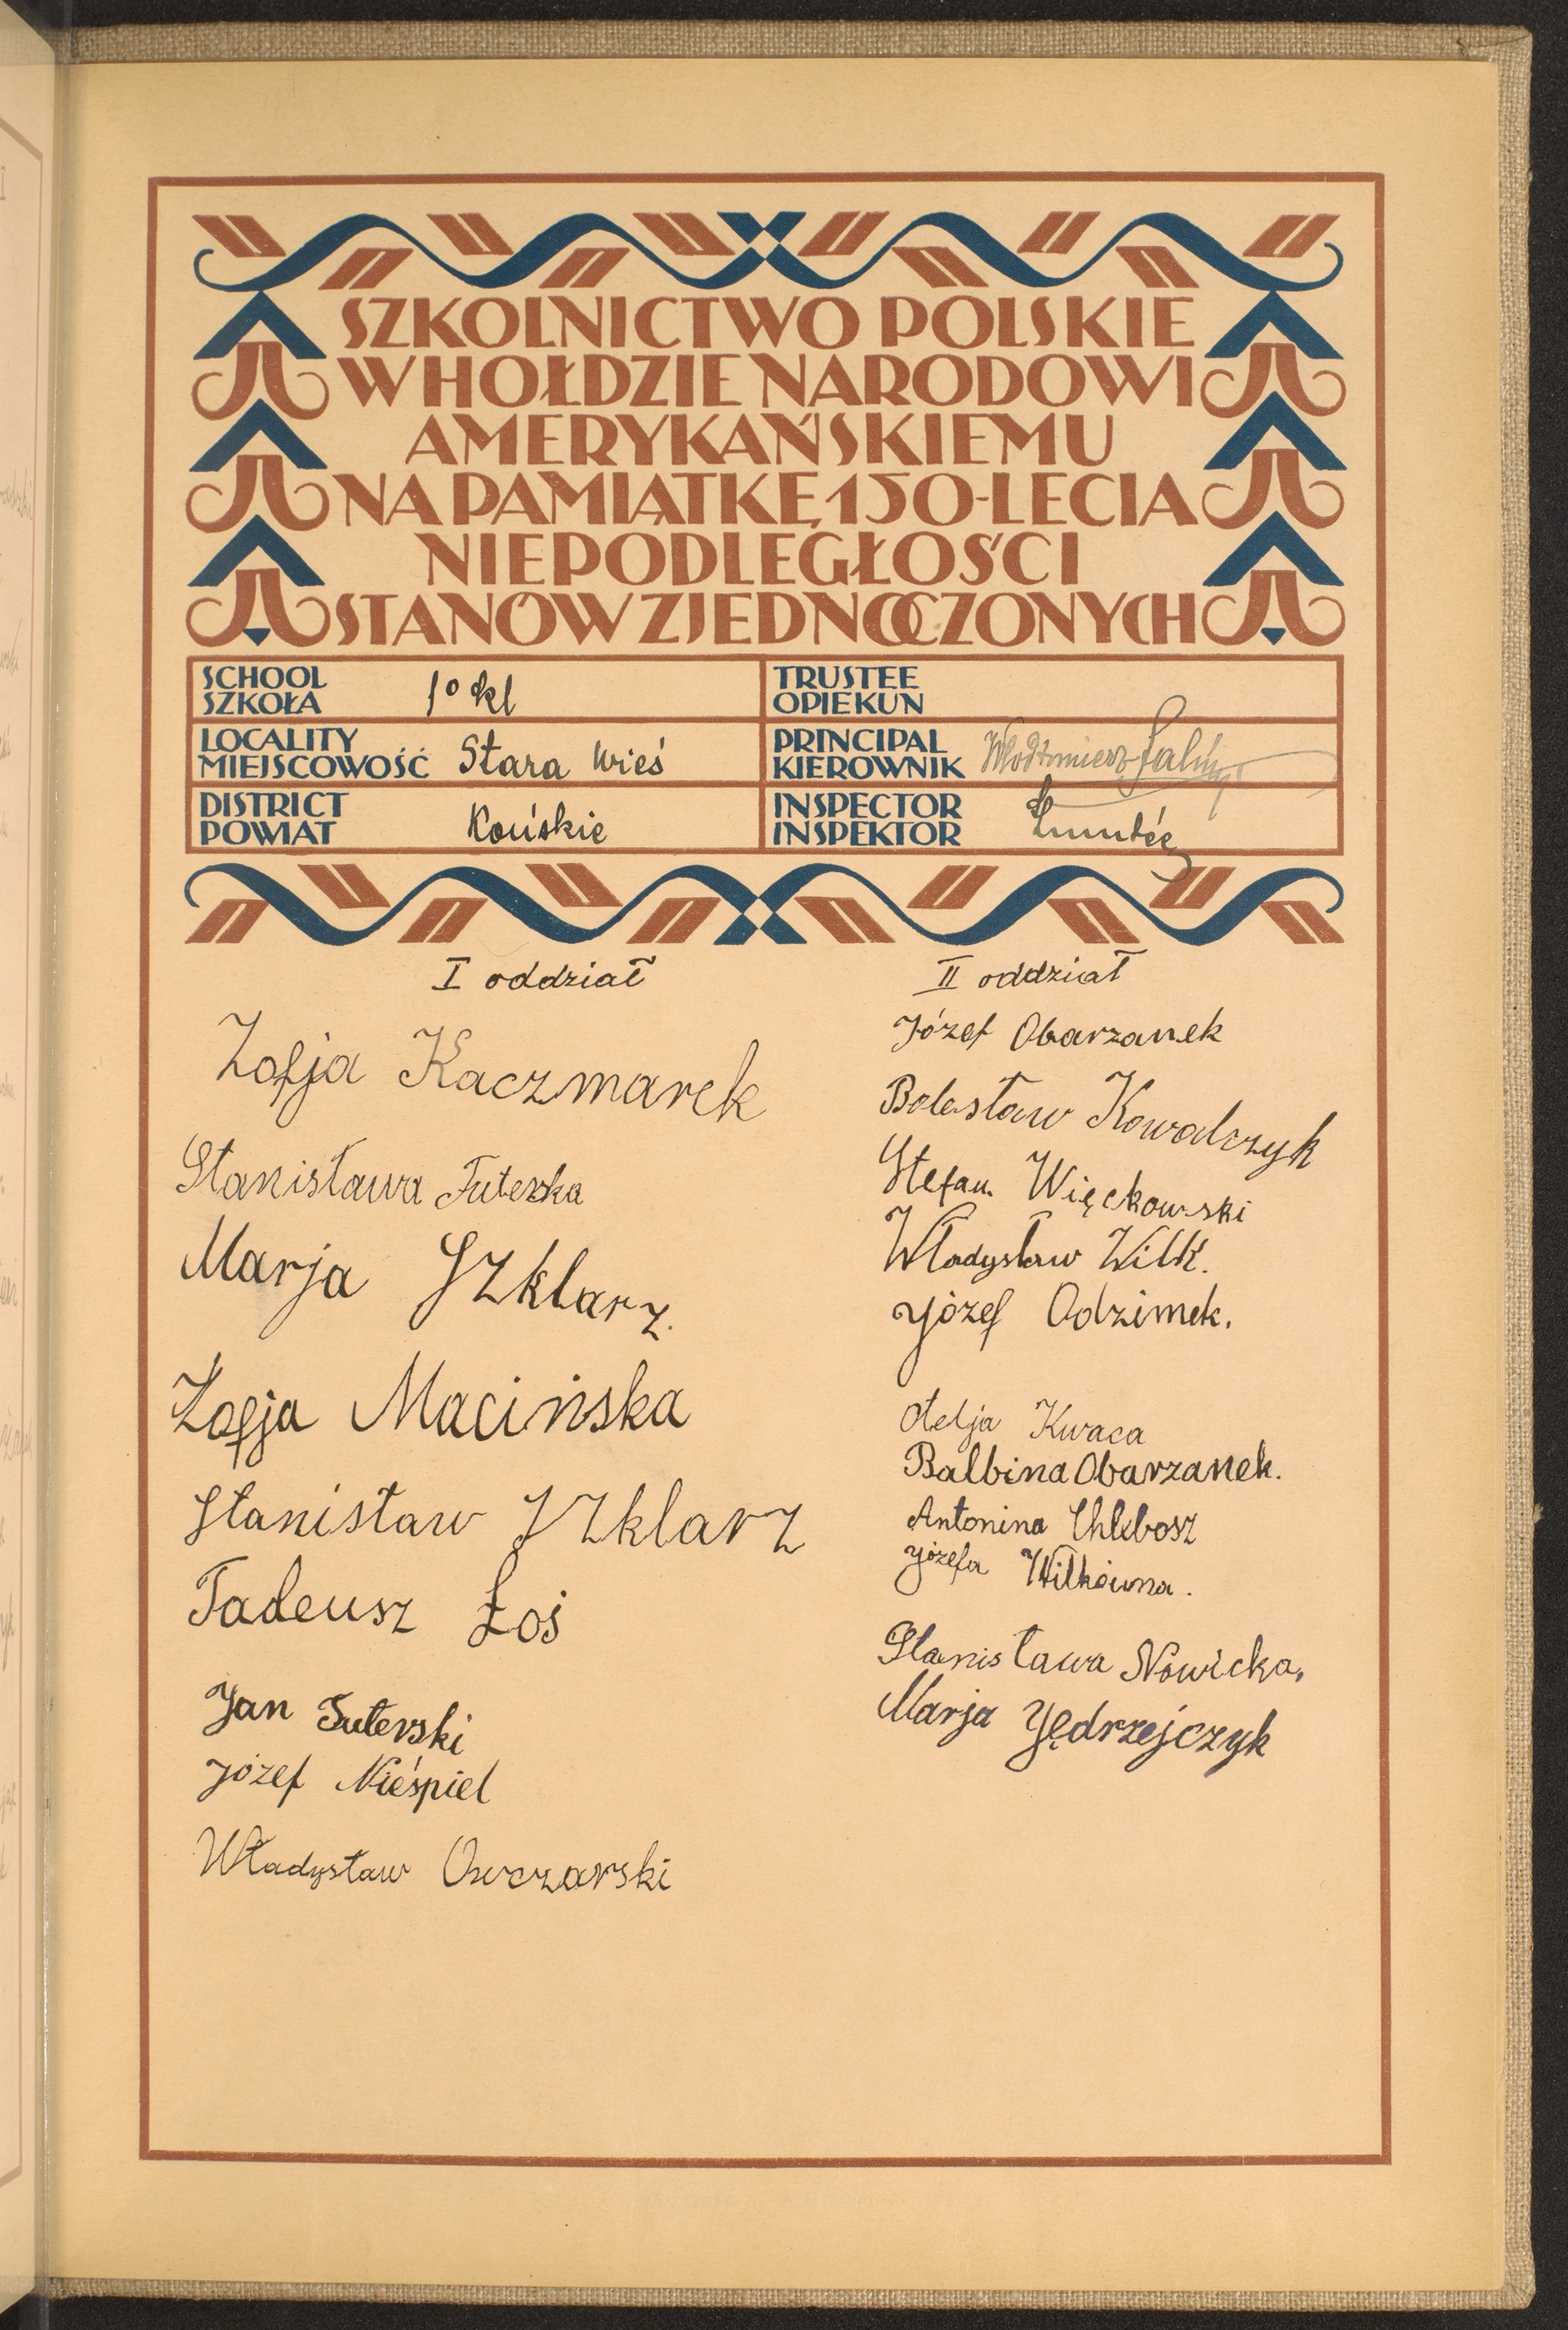 SZKOLNICTWO POLSKIE
W HOŁDZIE NARODOWI
AMERYKAŃSKIEMU
NA PAMIĄTKĘ 150-LECIA
NIEPODLEGŁOŚCI
STANÓW ZJEDNOCZONYCH
SCHOOL
SZKOŁA 1º kl
TRUSTEE
OPIEKUN
LOCALITY
MIEJSCOWOŚĆ Stara Wieś
PRINCIPAL
KIEROWNIK Włodzimierz
DISTRICT
POWIAT Końskie
INSPECTOR
INSPEKTOR
I oddział
Zofja Kaczmarek
Stanisława Futerska
Marja Szklarz.
Zofja Macińska
Stanisław Szklarz
Tadeusz Łoś
Jan Suterski
Józef Nieśpiel
Władysław Owczarski
II oddział
Józef Obarzanek
Bolesław Kowalczyk
Stefan Więckowski
Władysław Wilk.
Józef Odzimek.
Kwaca
Balbina Obarzanek.
Antonina Chlebosz
Józefa Wilkówna.
Stanisława Nowicka,
Marja Jędrzejczyk